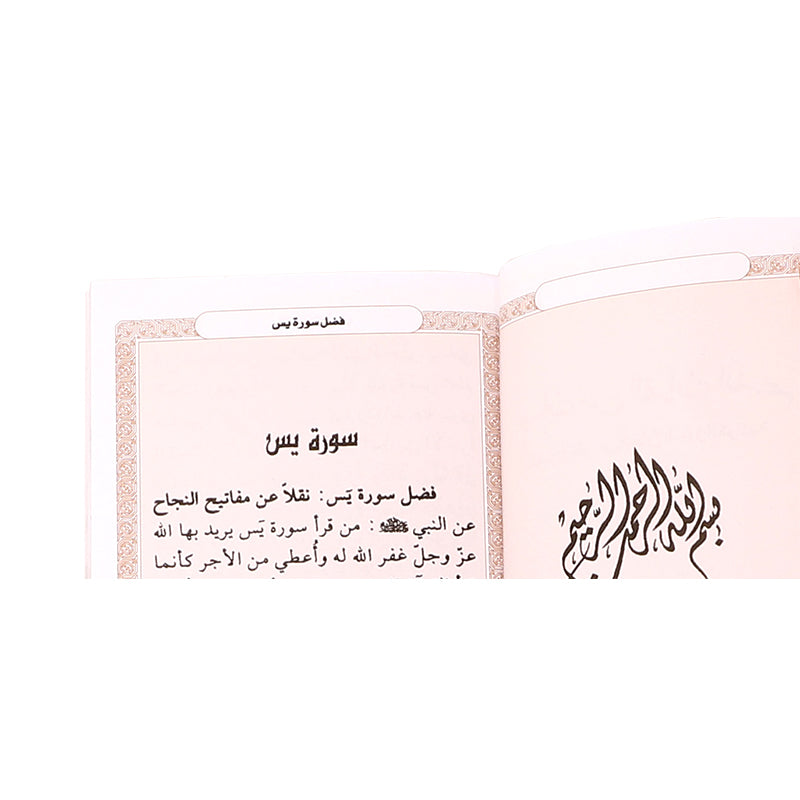 بسم الله الرحمن الرحيم
فضل سورة يس
سورة يس
فضل سورة يَس: نقلاً عن مفاتيح النجاح
عن النبي ﷺ: من قرأ سورة يَس يريد بها الله
عزّ وجلّ غفر الله له وأُعطي من الأجر كأنما